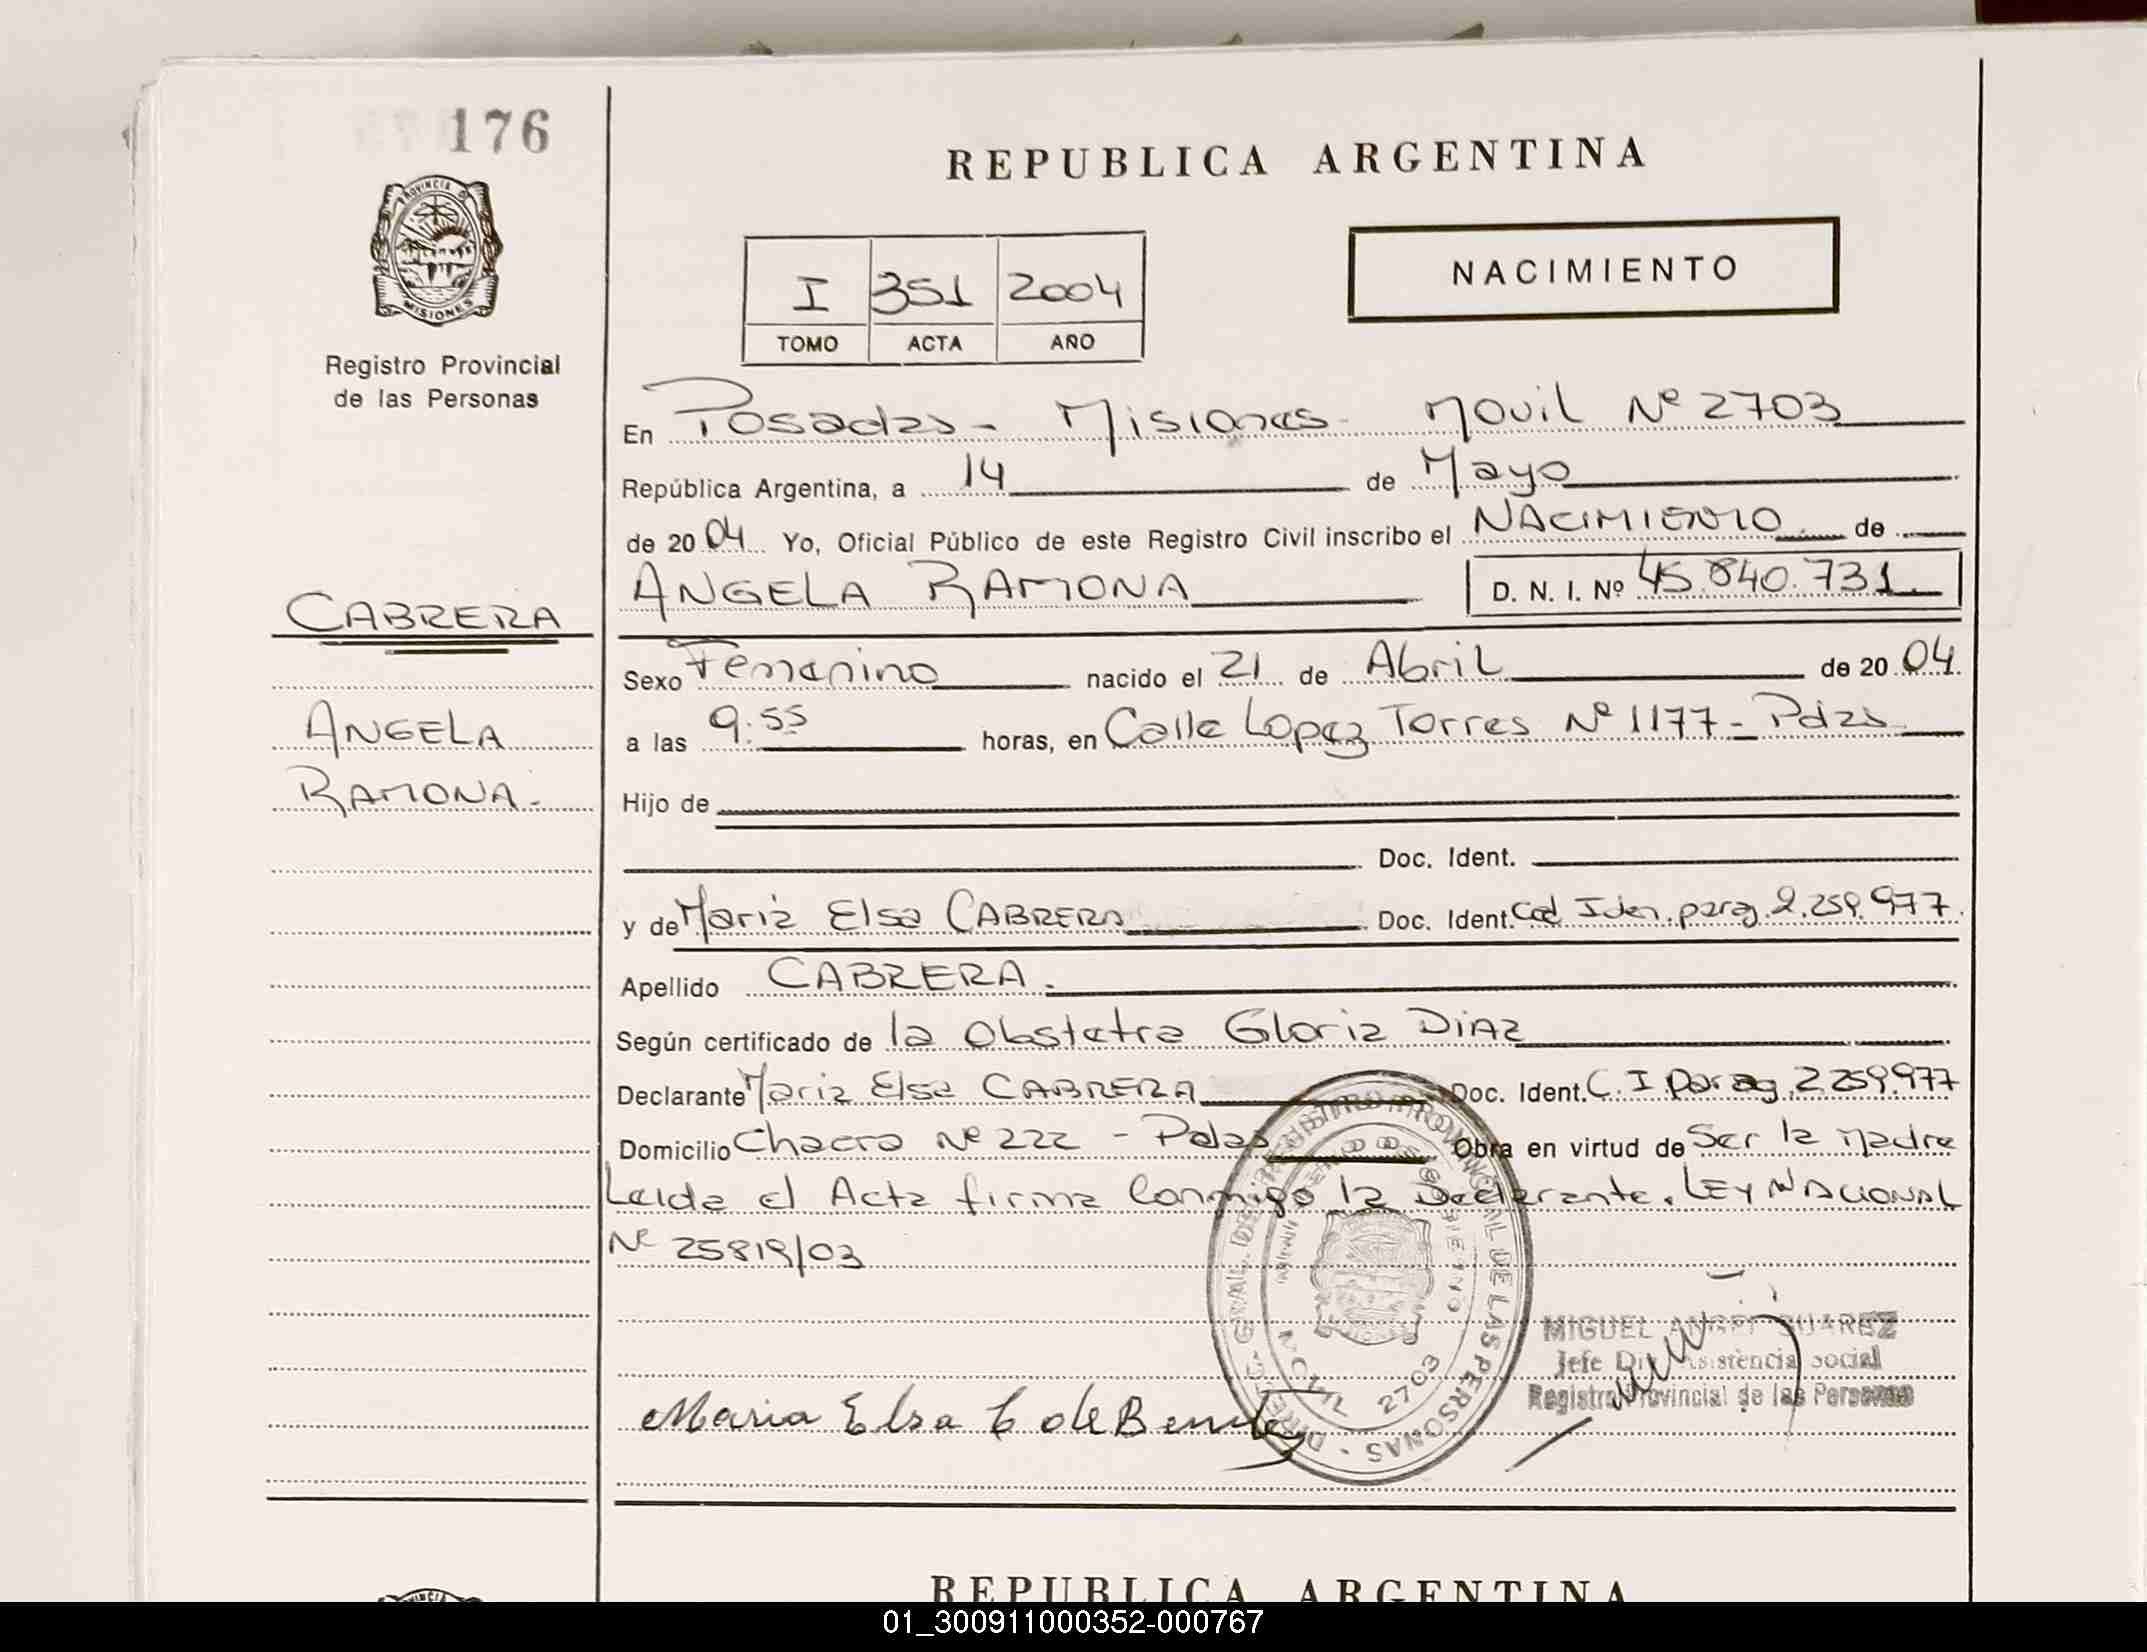 176
PROVINCIA D
MISIONES
Registro Provincial
de las Personas
REPUBLICA ARGENTINA
I 351 2004
TOMO ACTA AÑO
NACIMIENTO
En Posadas - Misiones - Movil Nº 2703
República Argentina, a 14 de Mayo
de 2004 Yo, Oficial Público de este Registro Civil inscribo el NACIMIENTO de
ANGELA RAMONA D. N. I. Nº 45.840.731.
CABRERA
ANGELA
RAMONA.-
Sexo Femenino nacido el 21 de Abril de 2004.
a las 9:55 horas, en Calle Lopez Torres Nº 1177 - Pdas
Hijo de
Doc. Ident.
y de Maria Elsa CABRERA Doc. Ident. Ced Iden. parag. 2.259.977
Apellido CABRERA.
Según certificado de la Obstetra Gloria DIAZ
Declarante Maria Elsa CABRERA Doc. Ident. C. I Parag 2.259.977
Domicilio Chacra Nº 222 - Pdas Obra en virtud de Ser la Madre
Leida el Acta firma Conmigo la Declarante. LEY NACIONAL
Nº 25819/03
DIREC. GRAL. DEL REGISTRO PROVINCIAL DE LAS PERSONAS
MOVIL 2703
MIGUEL ANGEL SUAREZ
Jefe Asistencia Social
Registro Provincial de las Personas
Maria Elsa C de Benitez
REPUBLICA ARGENTINA
01_300911000352-000767